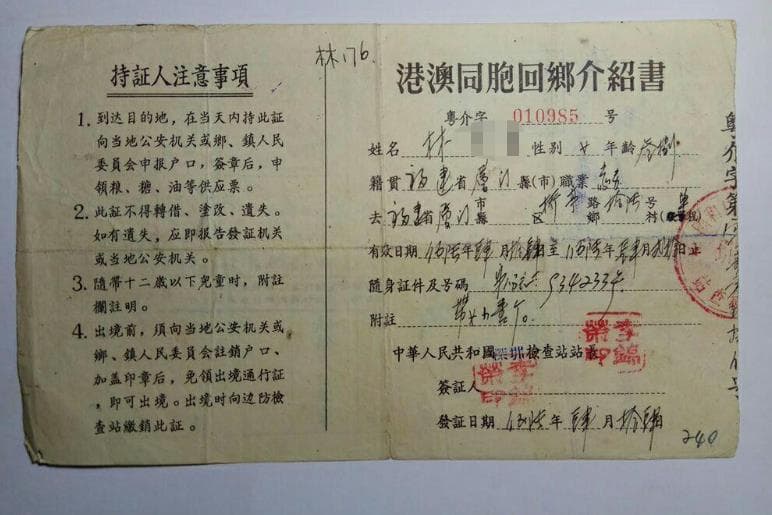 持証人注意事項
1. 到达目的地，在当天内持此証
向当地公安机关或鄉、鎮人民
委員会申报户口，簽章后，申
領粮、糖、油等供应票。
2. 此証不得轉借、塗改、遺失。
如有遺失，应即报告發証机关
或当地公安机关。
3. 隨帶十二歲以下兒童时，附註
欄註明。
4. 出境前，須向当地公安机关或
鄉、鎮人民委員会註銷户口、
加盖印章后，免領出境通行証
，即可出境。出境时向边防檢
查站繳銷此証。
林176.
港澳同胞回鄉介紹書
粤介字 010985 号
姓名 林 性别 女 年齡
籍貫 福建 省 厦门 縣(市) 職業
去 福建 省 厦门 市縣 区 路鄉 号村
有效日期 伍柒年肆月 至 伍柒年 月 日止
隨身証件及号碼 534233号
附註
中華人民共和國深圳檢查站站長
李鎬榮印
簽証人
李鎬榮印
發証日期 伍柒年肆月拾肆日
240
粤介字第